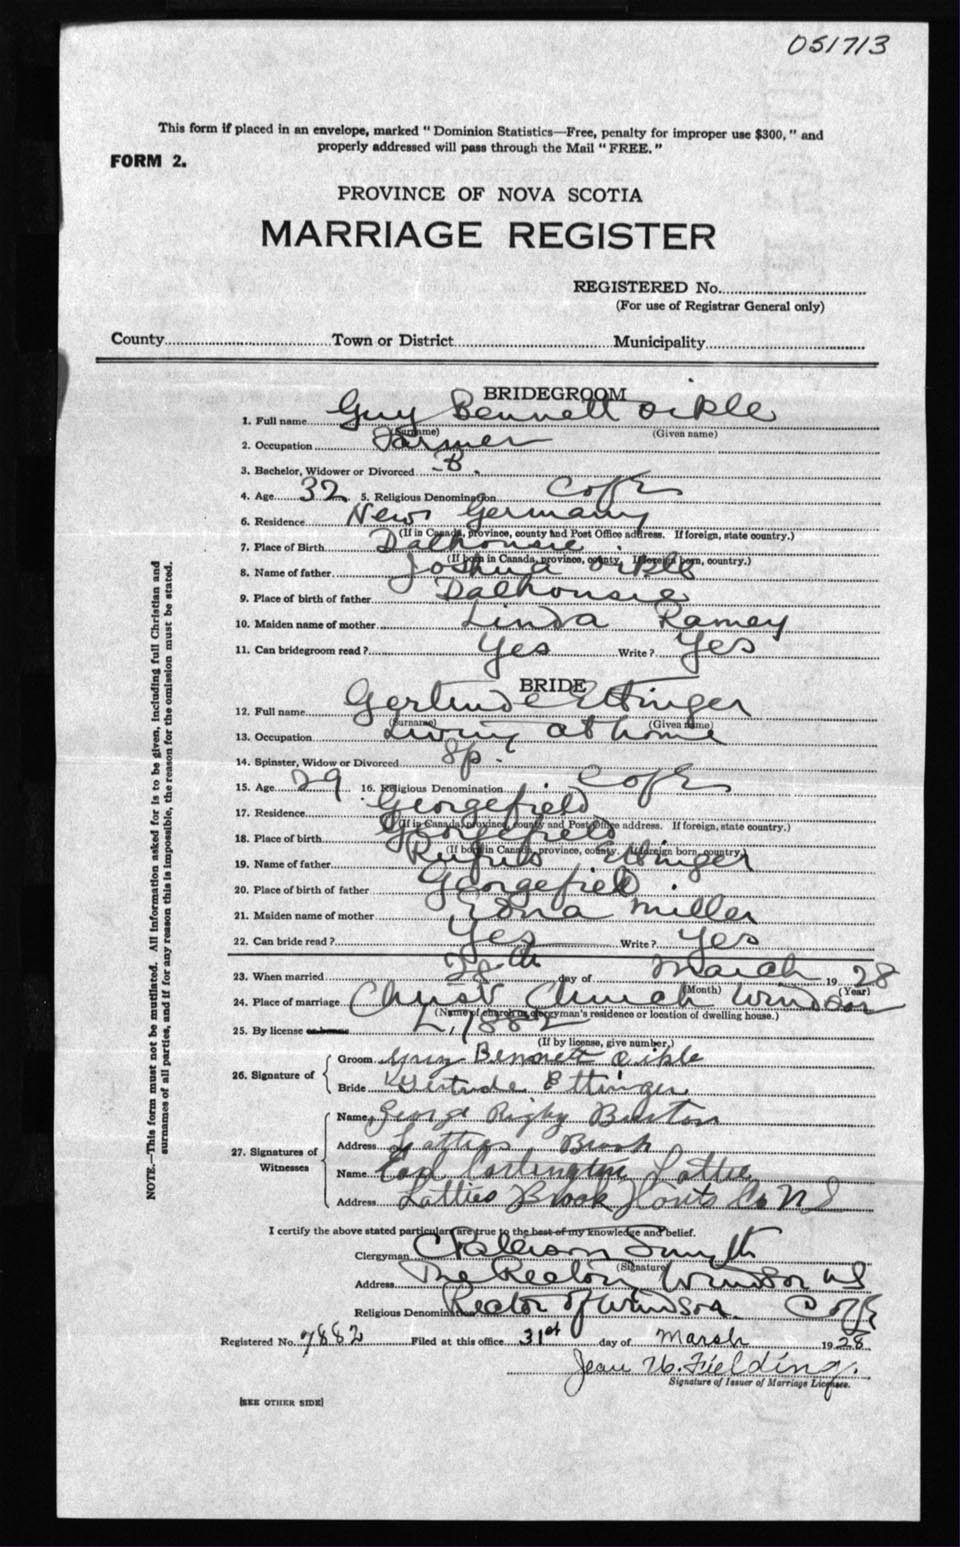 051713
This form if placed in an envelope, marked "Dominion Statistics—Free, penalty for improper use $300," and
properly addressed will pass through the Mail "FREE."
FORM 2.
PROVINCE OF NOVA SCOTIA
MARRIAGE REGISTER
REGISTERED No.
(For use of Registrar General only)
County Town or District Municipality
BRIDEGROOM
1. Full name Guy Bennett Oikle
(Surname) (Given name)
2. Occupation Farmer
3. Bachelor, Widower or Divorced B.
4. Age 32 5. Religious Denomination C of E
6. Residence New Germany
(If in Canada, province, county and Post Office address. If foreign, state country.)
7. Place of Birth Dalhousie
(If born in Canada, province, county. If foreign born, country.)
8. Name of father Joshua Oikle
9. Place of birth of father Dalhousie
10. Maiden name of mother Linda Ramey
11. Can bridegroom read? Yes Write? Yes
BRIDE
12. Full name Gertrude Ettinger
(Surname) (Given name)
13. Occupation Living at home
14. Spinster, Widow or Divorced Sp.
15. Age 29 16. Religious Denomination C of E
17. Residence Georgefield
(If in Canada, province, county and Post Office address. If foreign, state country.)
18. Place of birth Georgefield
(If born in Canada, province, county. If foreign born, country.)
19. Name of father Rufus Ettinger
20. Place of birth of father Georgefield.
21. Maiden name of mother Edna Miller
22. Can bride read? Yes Write? Yes
23. When married 28th day of March 1928
(Month) (Year)
24. Place of marriage Christ Church Windsor
(Name of church or clergyman's residence or location of dwelling house.)
25. By license or banns L, 7882
(If by license, give number.)
26. Signature of
Groom Guy Bennett Oikle
Bride Gertrude Ettinger
27. Signatures of Witnesses
Name George Rigby Burton
Address Latties Brook
Name Earl Lattie
Address Latties Brook Hants Co N S
I certify the above stated particulars are true to the best of my knowledge and belief.
Clergyman Smyth
(Signature)
Address The Rectory Windsor N S
Religious Denomination Rector of Windsor C of E
Registered No. 7882 Filed at this office 31st day of March 1928
Jean W. Fielding.
Signature of Issuer of Marriage Licenses.
[SEE OTHER SIDE]
NOTE.—This form must not be mutilated. All information asked for is to be given, including full Christian and
surnames of all parties, and if for any reason this is impossible, the reason for the omission must be stated.